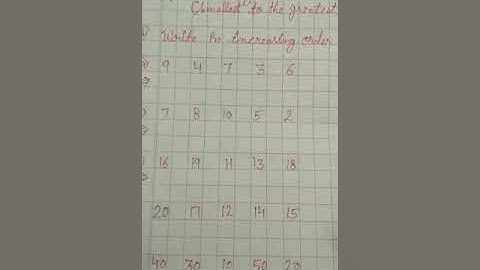 (Smallest to the greatest
Write in Increasing order
9 4 7 3 6
7 8 10 5 2
16 19 11 13 18
20 17 12 14 15
40 30 10 50 20